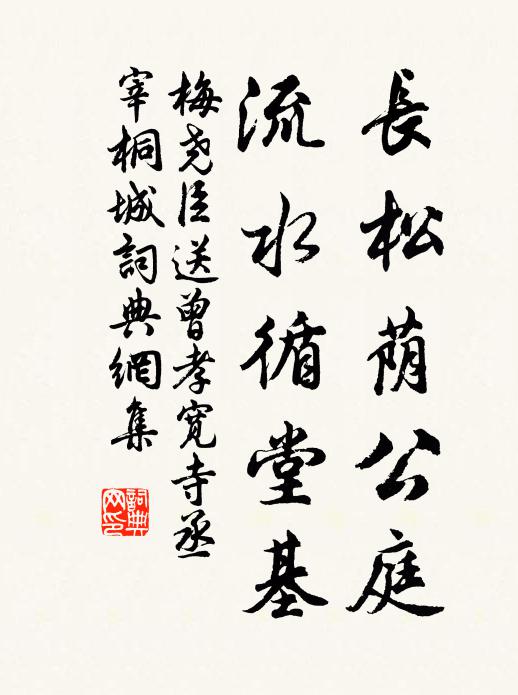 長松荫公庭
流水循堂基
梅尧臣送曾孝寬寺丞
宰桐城詞典網集
詞典网印